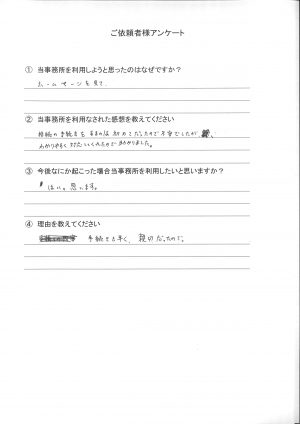 ご依頼者様アンケート
① 当事務所を利用しようと思ったのはなぜですか？
ホームページを見て
② 当事務所を利用なされた感想を教えてください
相続の手続きをするのは初めてだったので不安でしたが
わかりやすく対応していただいたので助かりました。
③ 今後なにか起こった場合当事務所を利用したいと思いますか？
はい。思います。
④ 理由を教えてください
手続きも早く、親切だったので。